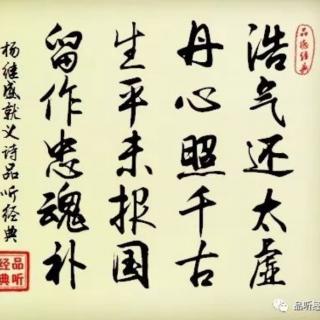 品听经典
浩气还太虚
丹心照千古
生平未报国
留作忠魂补
杨继盛就义诗品听经典
品听
经典
品听经